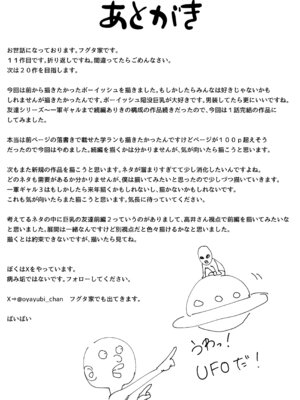 あとがき
お世話になっております。フグタ家です。
１１作目です。折り返しですね。間違ってたらごめんなさい。
次は２０作を目指します。
今回は前から描きたかったボーイッシュを描きました。もしかしたらみんなは好きじゃないかも
しれませんが描きたかったんです。ボーイッシュ陥没巨乳が大好きです。男装してたら更にいいですね。
友達シリーズ〜一軍ギャルまで続編ありきの構成の作品続きだったので、今回は１話完結の作品に
してみました。
本当は前ページの落書きで載せた学ランも描きたかったんですけどページが１００ｐ超えそう
だったので今回はやめました。続編を描くかは分かりませんが、気が向いたら描こうと思います。
次もまた新規の作品を描こうと思います。ネタが溜まりすぎてて少し消化したいんですよね。
どのネタも需要があるか分かりませんが、僕は描いてみたい！と思ったので少しづつ描いていきます。
一軍ギャル３はもしかしたら来年描くかもしれないし、描かないかもしれないです。
これも気が向いたらまた描こうと思います。気長に待っていてください。
考えてるネタの中に巨乳の友達前編２っていうのがありまして、高井さん視点で前編を描いてみたいな
と思いました。展開は一緒なんですけど別視点だと色々描けるかなと思いました。
描くとは約束できないですが、描いたら見てね。
ぼくはXをやっています。
病み垢ではないです。フォローしてください。
X⇒@oyayubi_chan　フグタ家でも出てきます。
ばいばい
うわっ！
UFOだ！